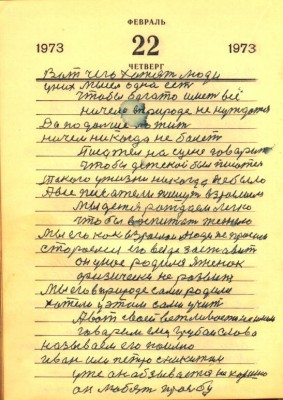 ФЕВРАЛЬ
1973 22 1973
ЧЕТВЕРГ
Вот чего хотят люди
у них мысел одна ест
Чтобы богато имет всё
ничево в природе не нуждатся
Да подолше пожит
ничем никогда не болет
Писател на сцене говорит
Чтобы детской был писател
Такого у жизни никогда не было
А все писатели пишут взрослим
Мы детя рождаем легко
Что бы воспитат
Мы его как взрослим люди не
стараемся его везде заставит
он уное родился
физически не развит
Мы его в природе сами родили
хотели у этом сами учит
А вот своей ветливости не имем
говорым ему грубай слова
называем его полно
Иван или петро никитин
уже он обзивается не хорошо
он любят правду